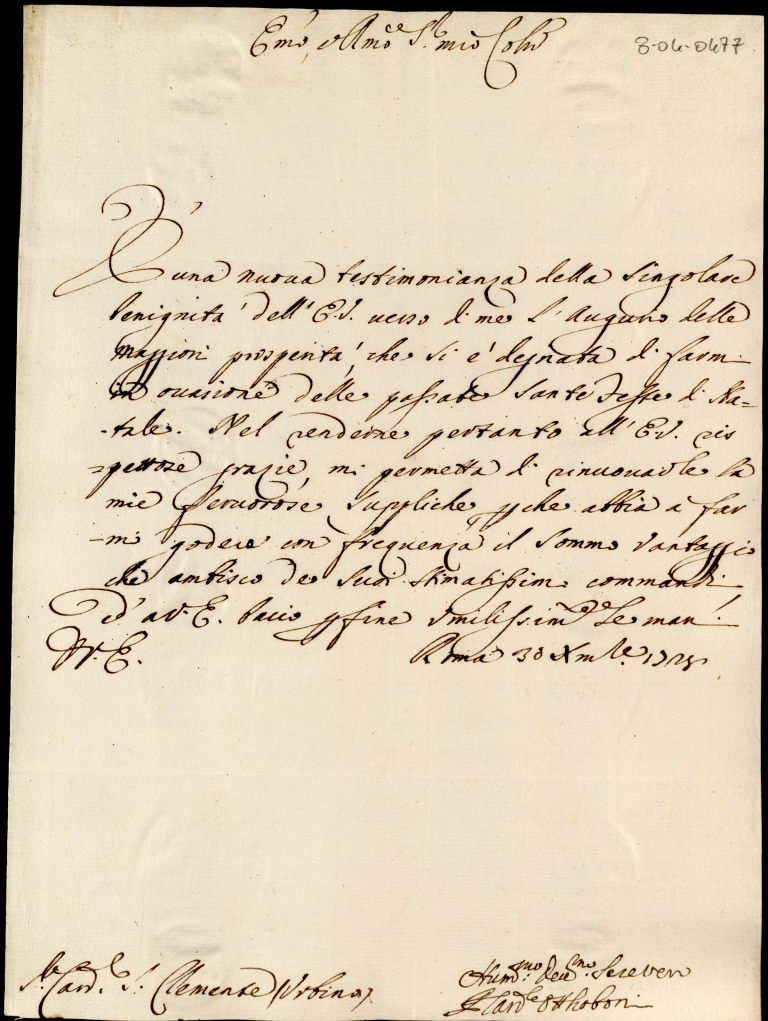 Em̃o, e Rmo Sr. mio Colmo
8-04-0477
È una nuova testimonianza della singolare
benignità dell' E.V. verso di me l'augurio delle
maggiori prosperità, che si è degnata di farmi
in occasione delle passate Sante Feste di Na=
-tale. Nel renderne pertanto all' E.V. ris
=pettose grazie, mi permetta di rinuovarle le
mie fervorose suppliche, pche abbia a far
-mi godere con frequenza il sommo vantaggio
che ambisco de suoi stimatissimi commandi
e a V. E. bacio p fine umilissimte le mani.
Di V. E.
Roma 30 Xmbre. 1725
Sr. Card. S. Clemente (Urbino)
Humo. devmo Servitore
P. Card. Otthoboni